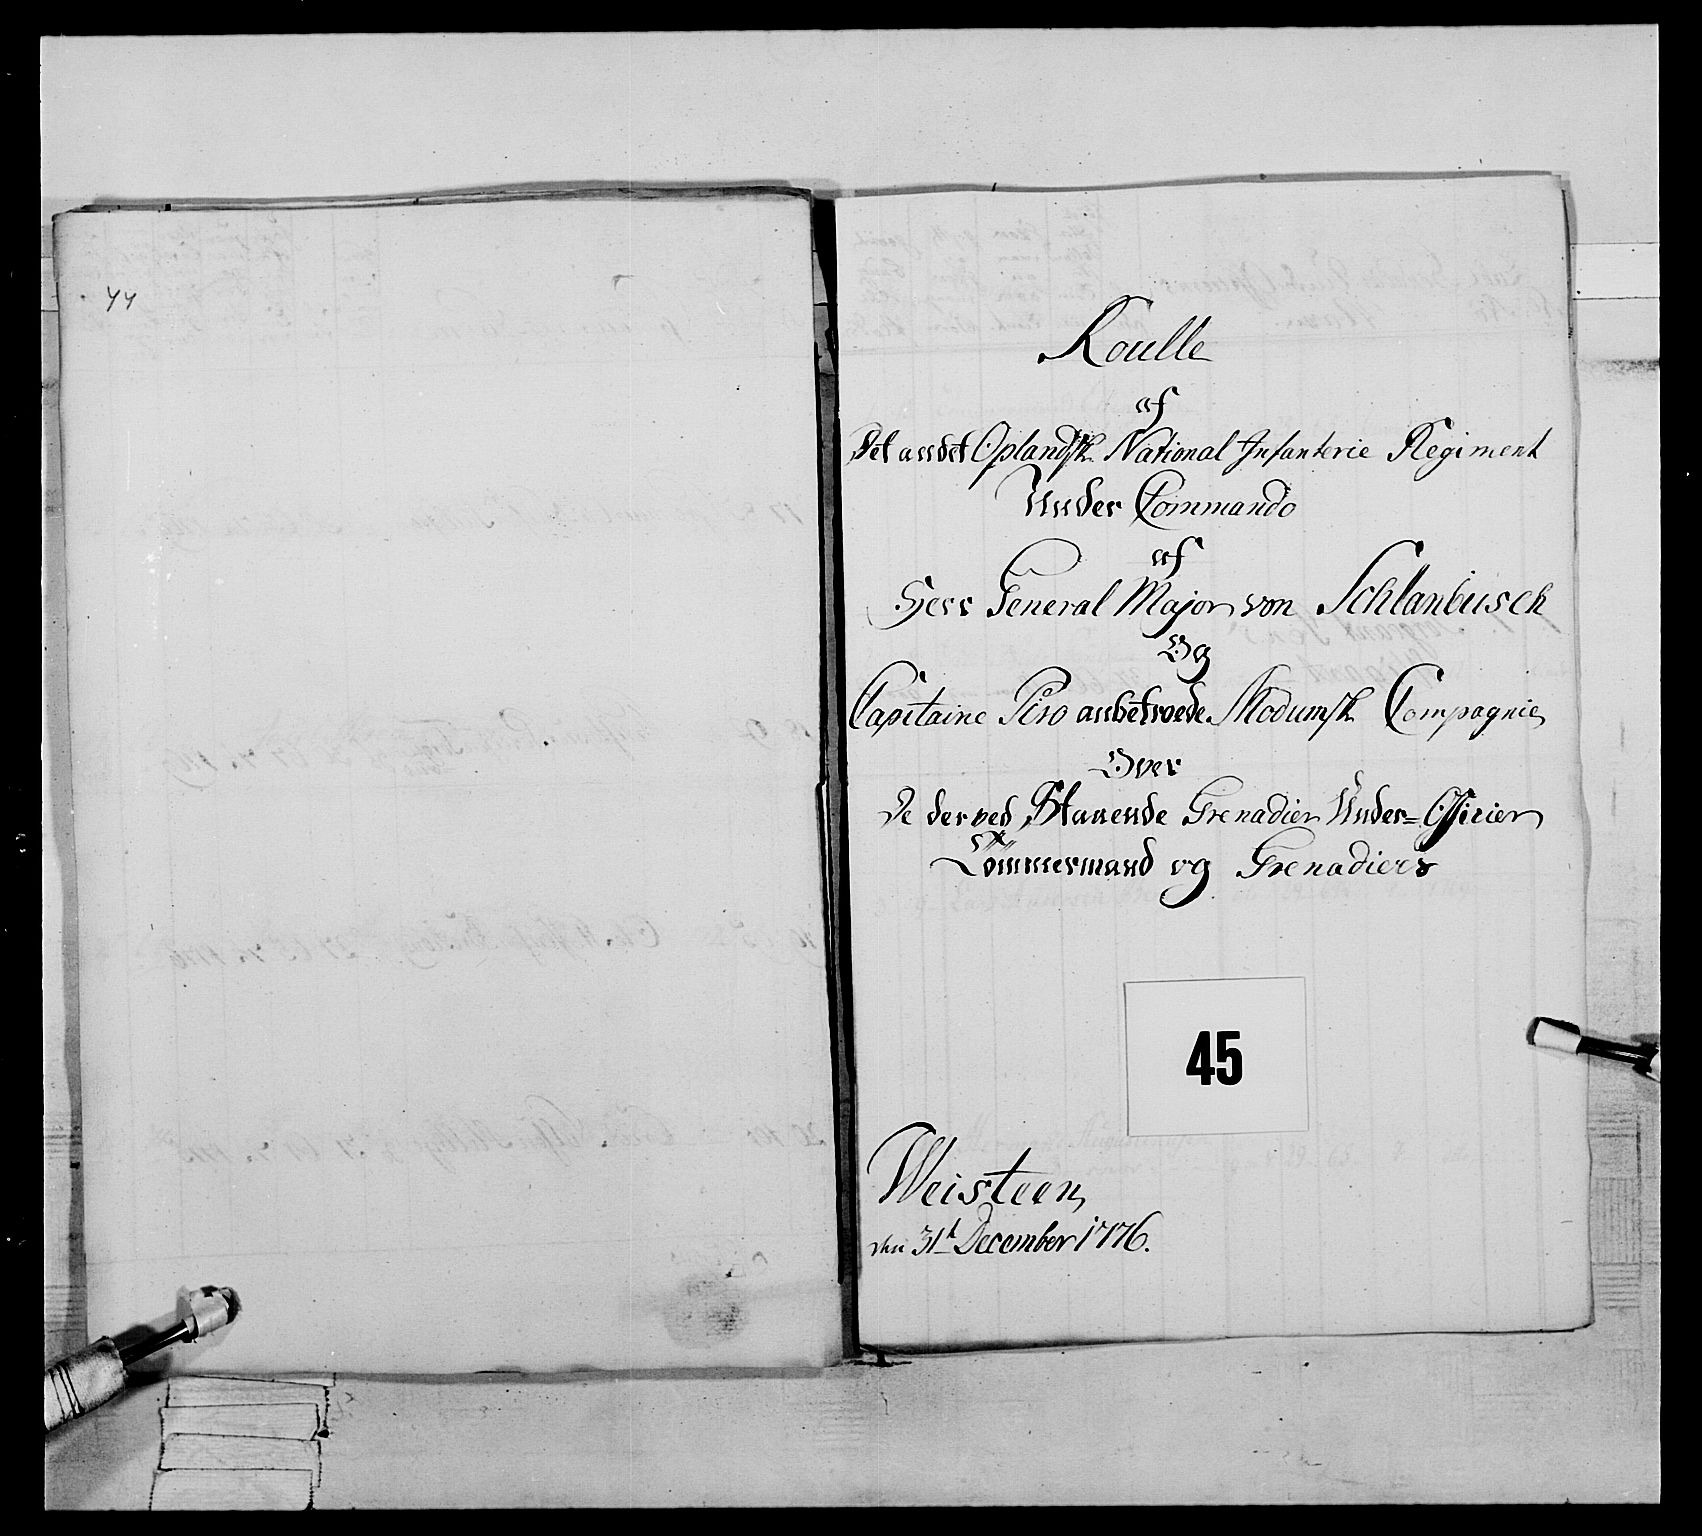 44
Roulle
af
Det andet Oplandsk National Infanterie Regiment
Under Commando
af
Herr General Major von Schlanbusch
Og
Capitaine Piro anbetroede Modumsk Compagnie
Over
De derved Staaende Grenadier Under=Officier
Tømmermand og Grenadiers
45
Weisteen
den 31t December 1776.